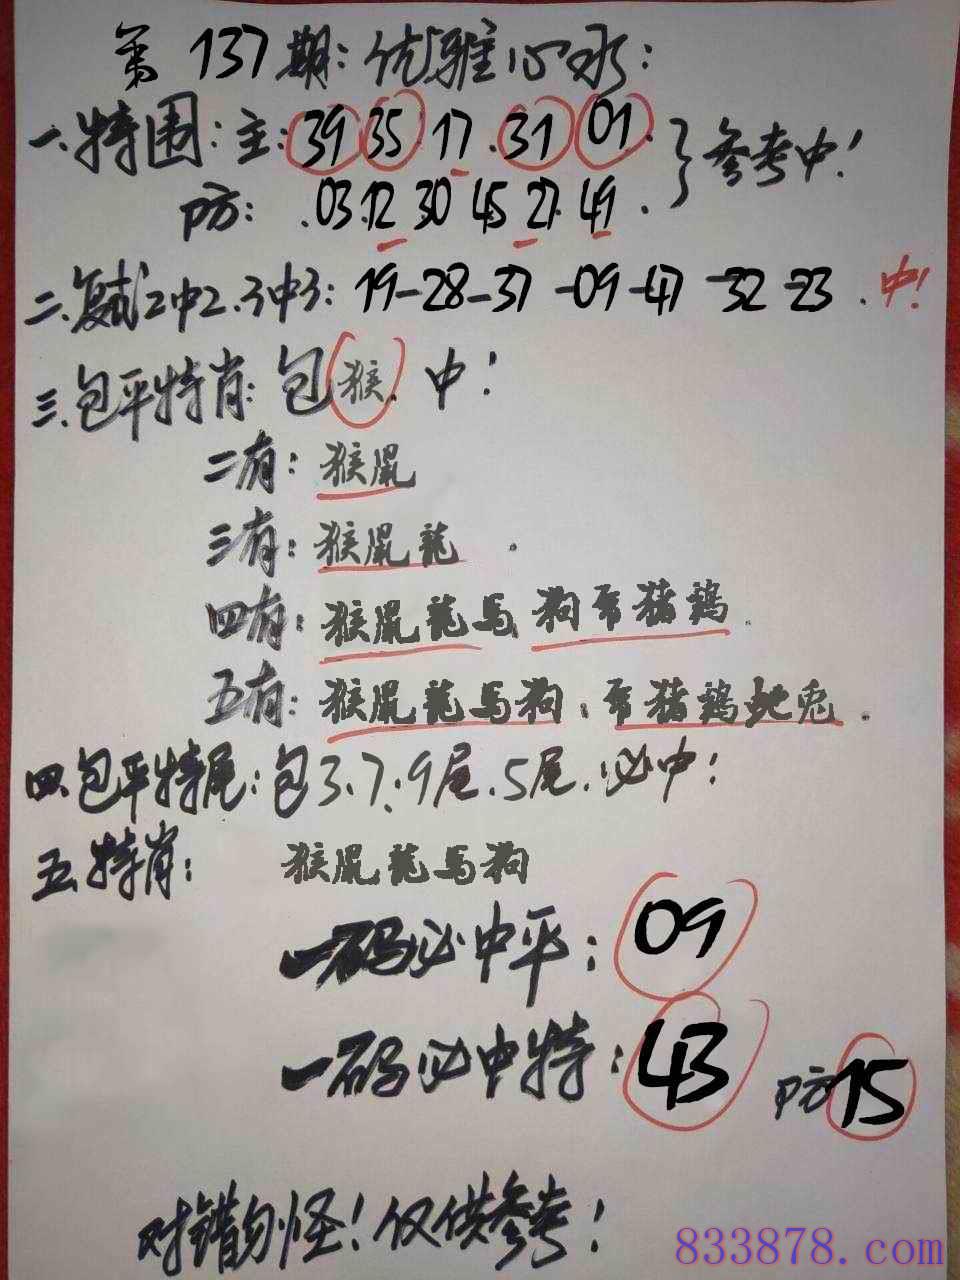 第137期:优雅心水:
一.特围:主:39 35 17.31 01.
防:.03.12 30 45 27.49.
参考中!
二.复式2中2.3中3:19-28-37-09-47-32-23.中!
三.包平特肖:包猴.中!
二有:猴鼠
三有:猴鼠龍.
四有:猴鼠龍马.狗羊猪鸡.
五有:猴鼠龍马狗.羊猪鸡蛇兔.
四.包平特尾:包3.7.9尾.5尾.必中!
五.特肖:猴鼠龍马狗
一码必中平:09
一码必中特:43 防15
对错勿怪!仅供参考!
833878.com